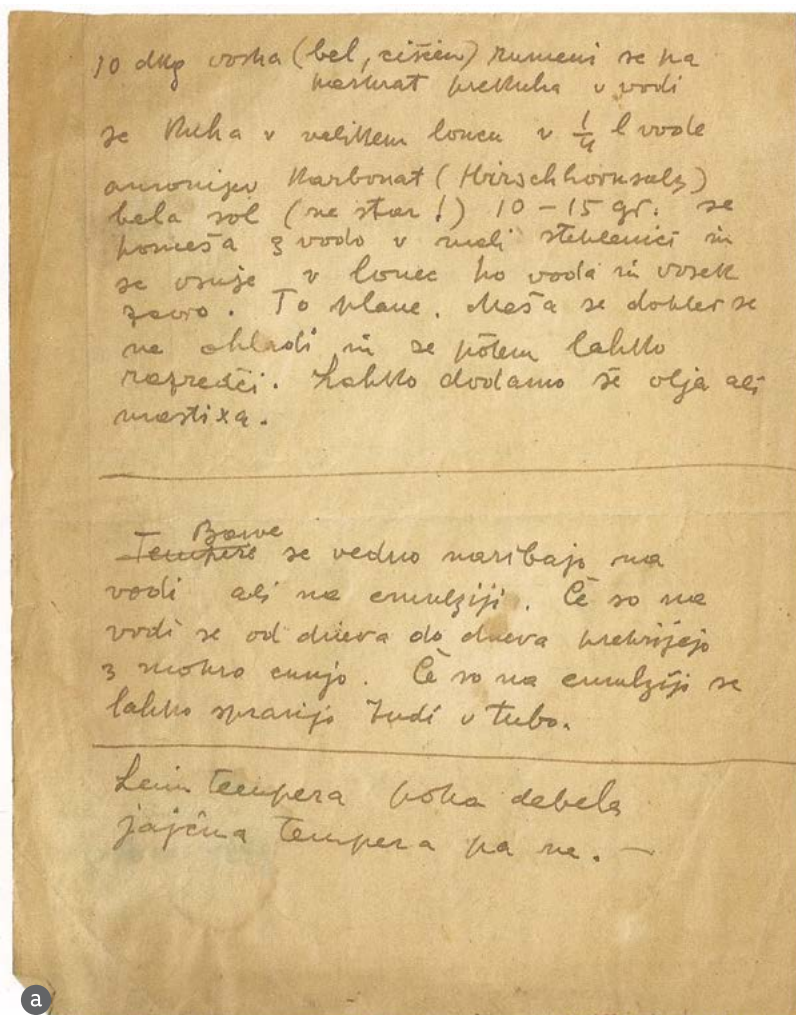 10 dkg voska (bel, čiščen) rumeni se pa
parkrat prekuha v vodi
se kuha v velikem loncu v 1/4 l vode
amonijev karbonat (Hirschhornsalz)
bela sol (ne star!) 10 – 15 gr. se
pomeša z vodo v mali steklenici in
se vsuje v lonec ko voda in vosek
zavro. To plane. Meša se dokler se
ne ohladi in se potem lahko
razredči. Lahko dodamo še olja ali
mastixa.
Barve
Tempere se vedno naribajo na
vodi ali na emulziji. Če so na
vodi se od dneva do dneva prekrijejo
z mokro cunjo. Če so na emulziji se
lahko spravijo tudi v tubo.
Leim tempera poka debela
jajčna tempera pa ne. –
a